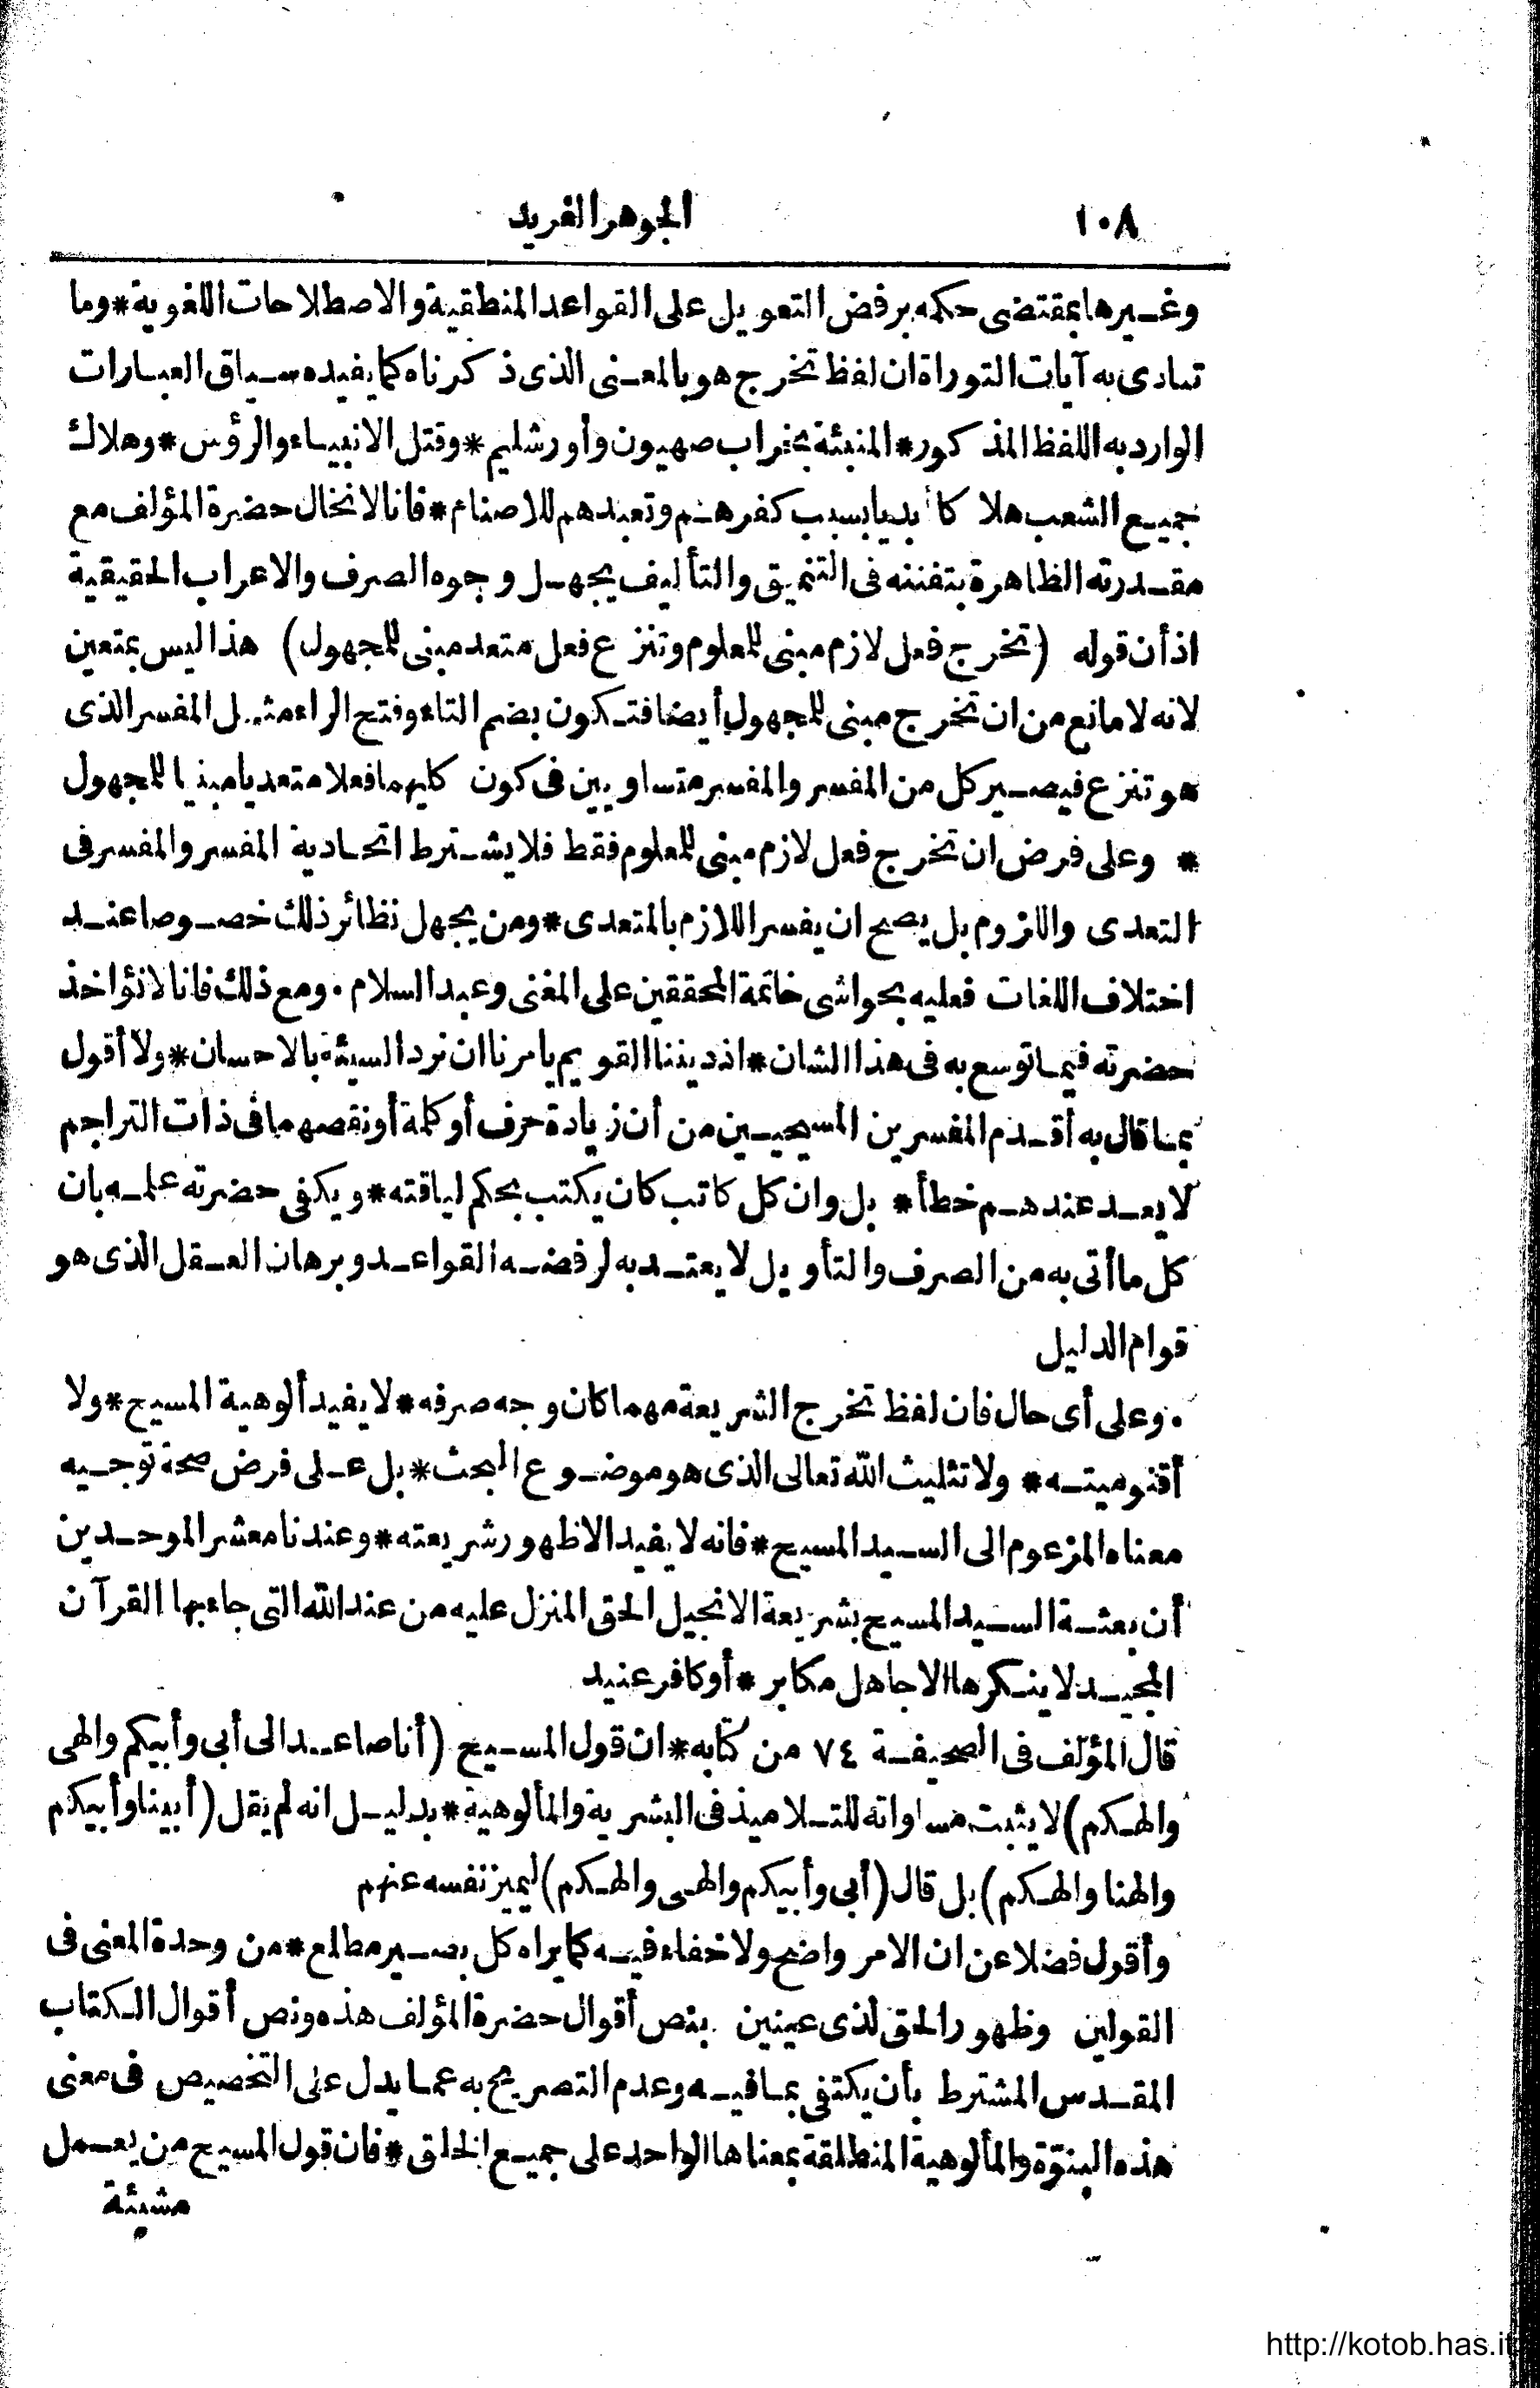 ١٠٨
الجوهر الفريد
وغيرها بمقتضى حكمه برفض التعويل على القواعد المنطقية والاصطلاحات اللغوية * وما
تنادى به آيات التوراة ان لفظ تخرج هو بالمعنى الذى ذكرناه كما يفيده سياق العبارات
الوارد به اللفظ المذكور * المنبئة بخراب صهيون وأورشليم * وقتل الانبياء والرؤس * وهلاك
جميع الشعب هلاكا أبديا بسبب كفرهم وتعبدهم للاصنام * فانا لا نخال حضرة المؤلف مع
مقدرته الظاهرة بتفننه فى التنميق والتأليف يجهل وجوه الصرف والاعراب الحقيقية
اذ أن قوله (تخرج فعل لازم مبنى للمعلوم وتنزع فعل متعد مبنى للمجهول) هذا ليس بمتعين
لانه لا مانع من ان تخرج مبنى للمجهول أيضا فتكون بضم التاء وفتح الراء مثل المفسر الذى
هو تنزع فيصير كل من المفسر والمفسر متساويين فى كون كليهما فعلا متعديا مبنيا للمجهول
* وعلى فرض ان تخرج فعل لازم مبنى للمعلوم فقط فلا يشترط اتحادية المفسر والمفسر فى
التعدى واللزوم بل يصح ان يفسر اللازم بالمتعدى * ومن يجهل نظائر ذلك خصوصا عند
اختلاف اللغات فعليه بحواشى خاتمة المحققين على المغنى وعبد السلام . ومع ذلك فانا لا نؤاخذ
حضرته فيما توسع به فى هذا الشان * اذ ديننا القويم يامرنا ان نرد السيئة بالاحسان * ولا أقول
بما قال به أقدم المفسرين المسيحيين من أن زيادة حرف أو كلمة أو نقصهما فى ذات التراجم
لا يعد عندهم خطأ * بل وان كل كاتب كان يكتب بحكم لياقته * ويكفى حضرته علمه بان
كل ما أتى به من الصرف والتأويل لا يعتد به لرفضه القواعد وبرهان العقل الذى هو
قوام الدليل
. وعلى أى حال فان لفظ تخرج الشريعة مهما كان وجه صرفه * لا يفيد ألوهية المسيح * ولا
أقنوميته * ولا تثليث الله تعالى الذى هو موضوع البحث * بل على فرض صحة توجيه
معناه المزعوم الى السيد المسيح * فانه لا يفيد الا ظهور شريعته * وعندنا معشر الموحدين
أن بعثة السيد المسيح بشريعة الانجيل الحق المنزل عليه من عند الله التى جاء بها القرآن
المجيد لا ينكرها الا جاهل مكابر * أو كافر عنيد
قال المؤلف فى الصحيفة ٧٤ من كتابه * ان قول المسيح (أنا صاعد الى أبى وأبيكم والهى
والهكم) لا يثبت مساواته للتلاميذ فى البشرية والمألوهية * بدليل انه لم يقل (أبينا وأبيكم
والهنا والهكم) بل قال (أبى وأبيكم والهى والهكم) ليميز نفسه عنهم
وأقول فضلا عن ان الامر واضح ولا خفاء فيه كما يراه كل بصير مطلع * من وحدة المعنى فى
القولين وظهور الحق لذى عينين بنص أقوال حضرة المؤلف هذه ونص أقوال الكتاب
المقدس المشترط بأن يكتفى بما فيه وعدم التصريح به عما يدل على التخصيص فى معنى
هذه البنوّة والمألوهية المنطلقة بمعناها الواحد على جميع الخلق * فان قول المسيح من يعمل
مشيئة
http://kotob.has.it